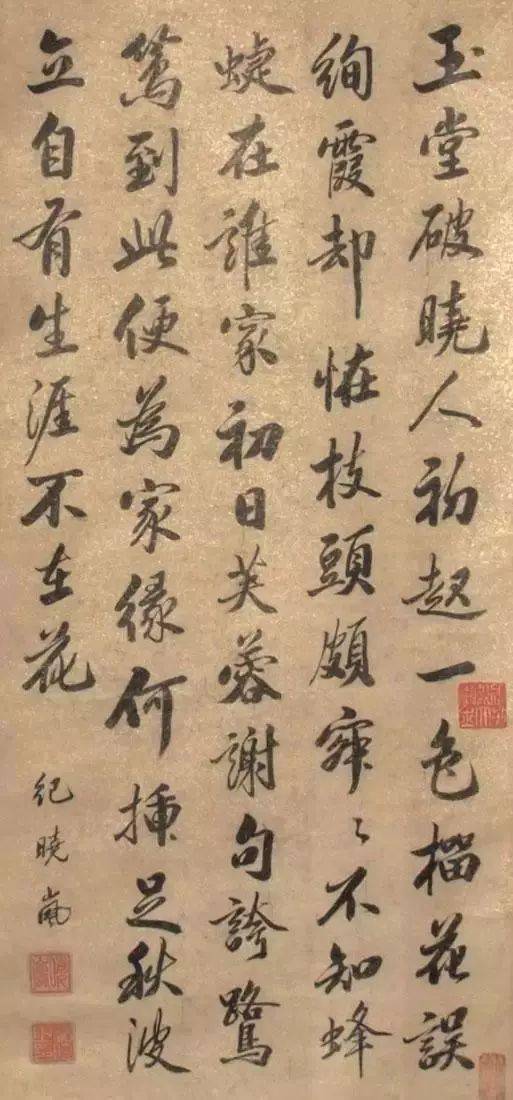 玉堂破曉人初起一色榴花誤
絢霞却恠枝頭頗寂〻不知蜂
蜨在誰家初日芙蓉謝句誇鷺
鷥到此便為家緣何插足秋波
立自有生涯不在花
紀曉嵐